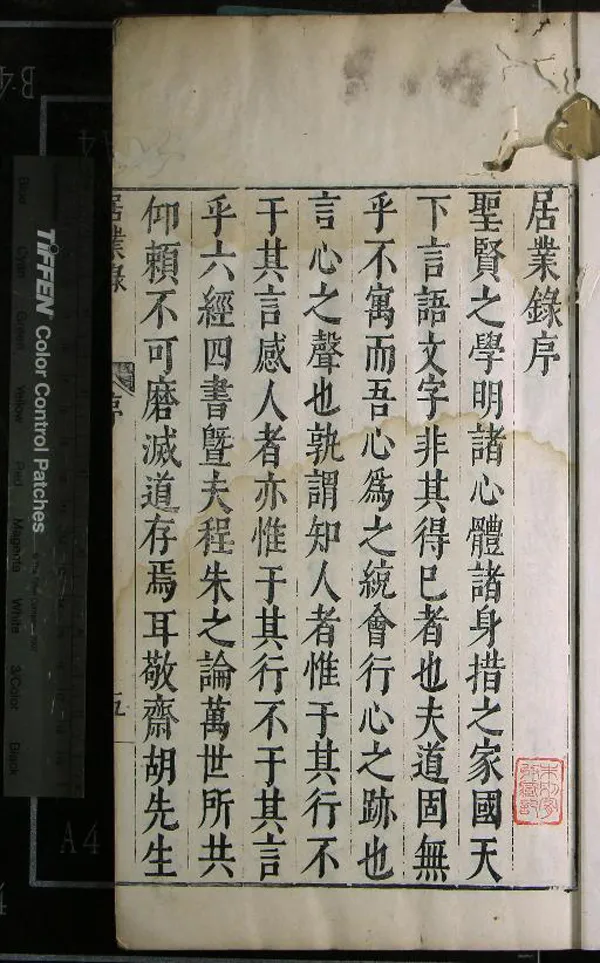 居業錄序
聖賢之學明諸心體諸身措之家國天
下言語文字非其得已者也夫道固無
乎不寓而吾心爲之統會行心之跡也
言心之聲也孰謂知人者惟于其行不
于其言感人者亦惟于其行不于其言
乎六經四書曁夫程朱之論萬世所共
仰頼不可磨滅道存焉耳敬齋胡先生
居業錄
序
五
TIFFEN Color Control Patches
Blue
Cyan
Green
Yellow
Red
Magenta
White
3/Color
Black
B4
A4
A4